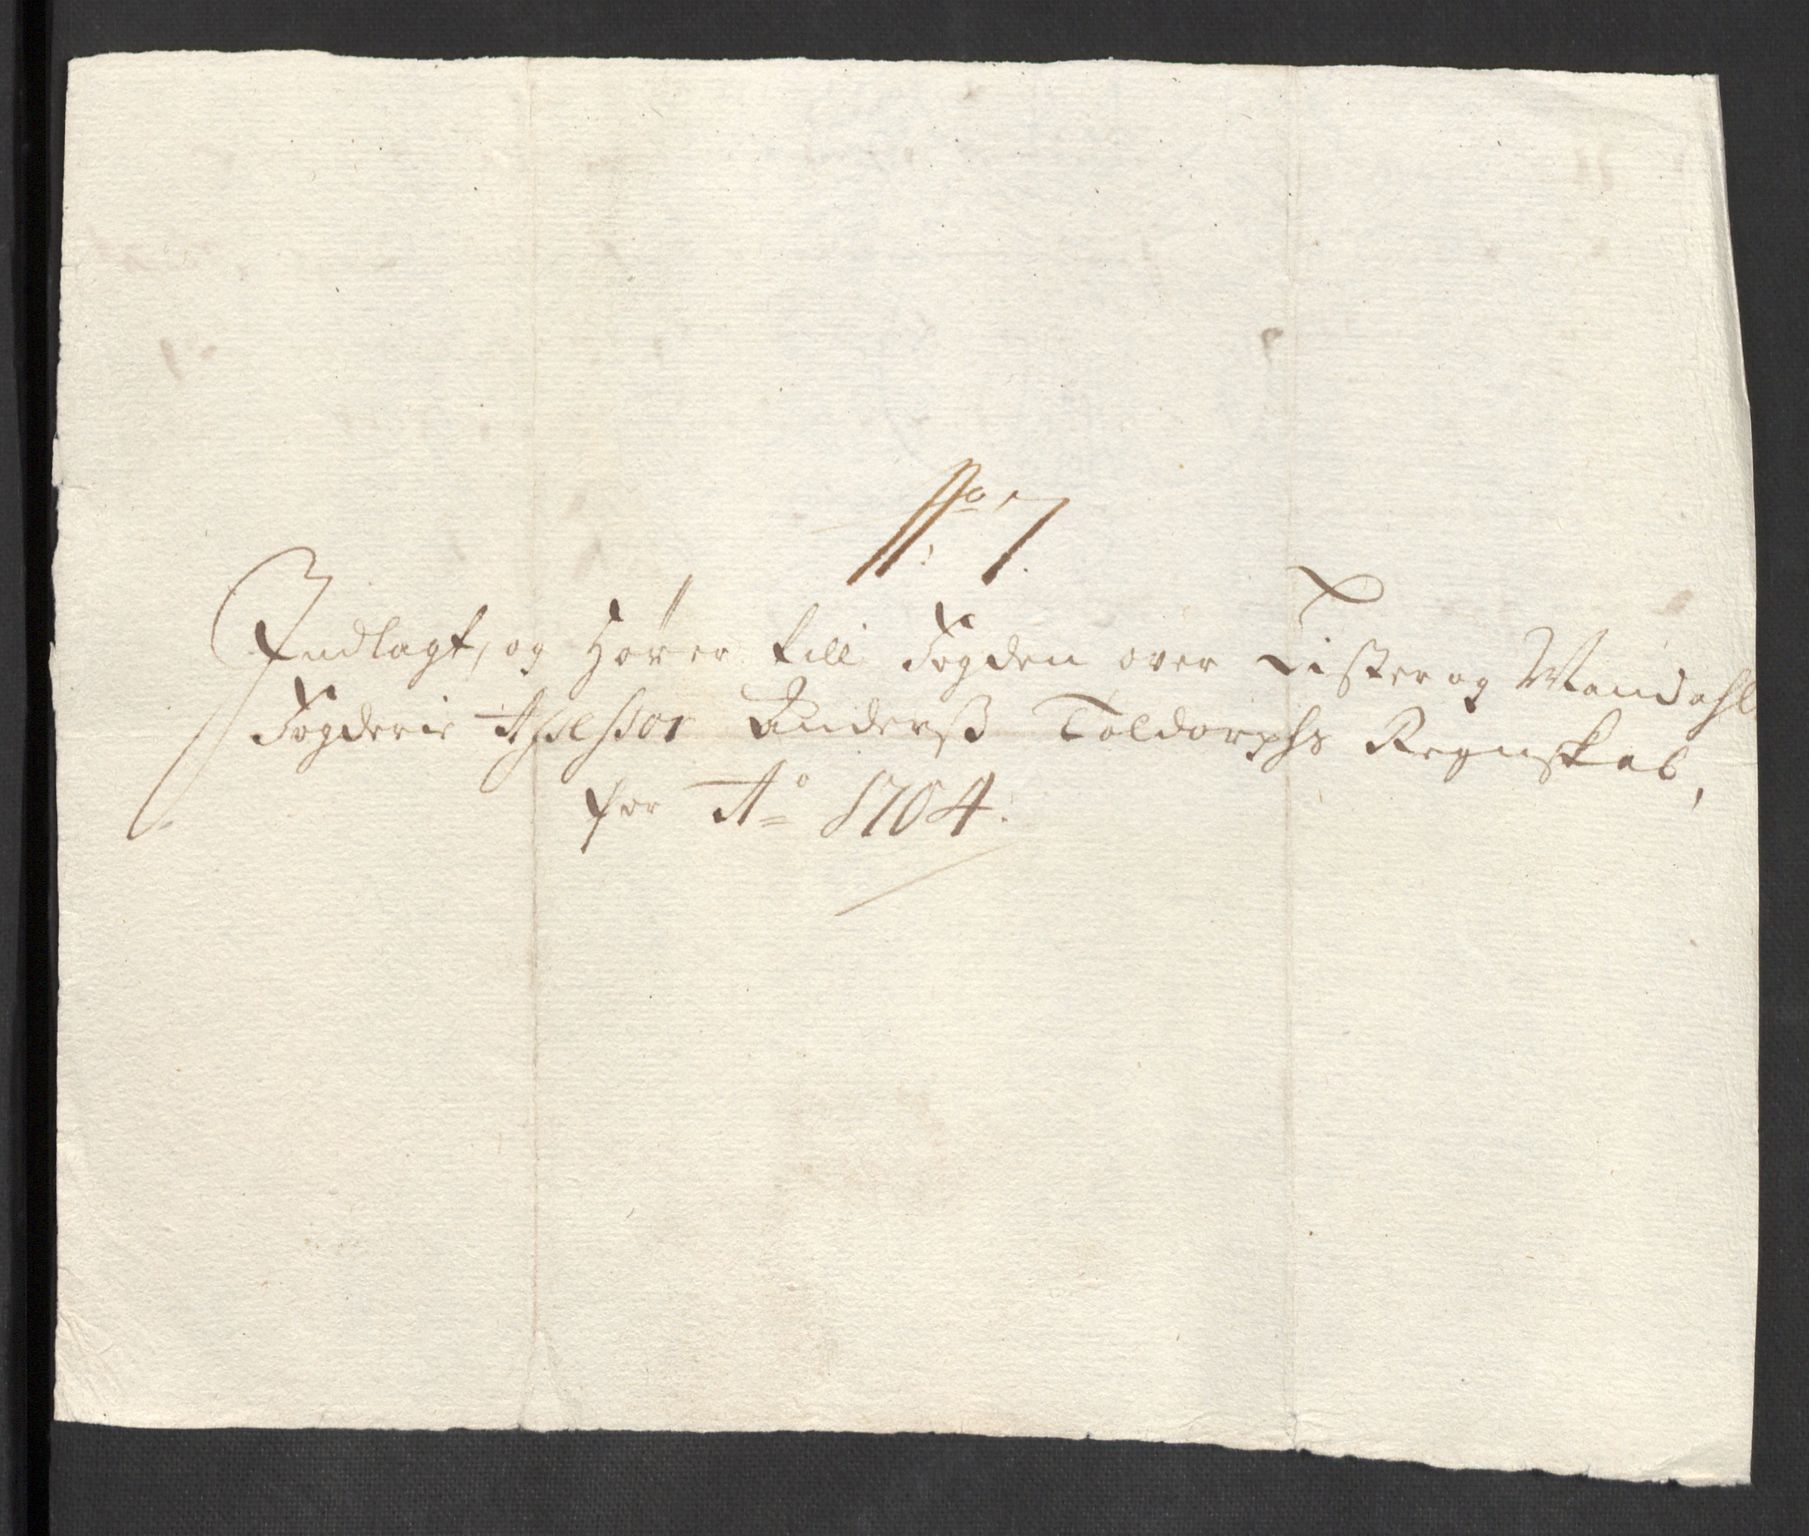 No 7.
Indlagt, og Hører till Fogden over Lister og Mandahls
Fogderie Assessor Anderß Toldorphs Regnskab,
for Ao 1704.